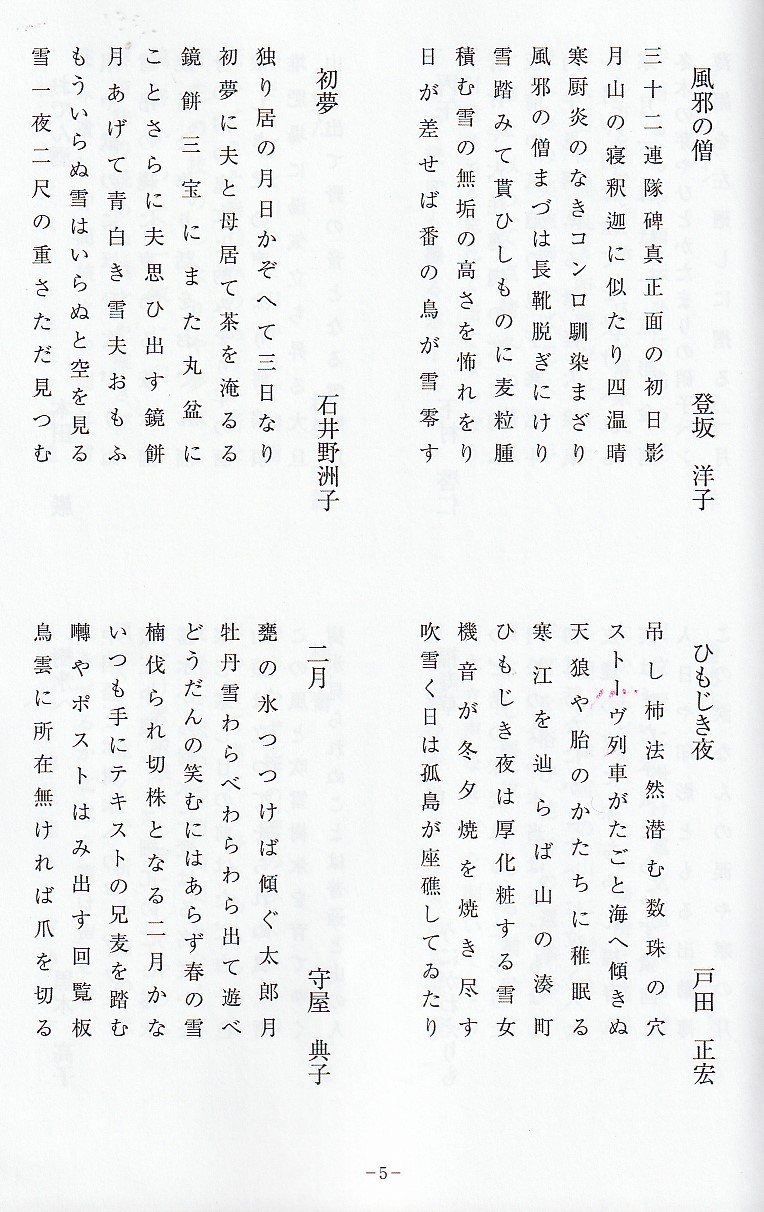 風邪の僧
登坂 洋子
三十二連隊碑真正面の初日影
月山の寝釈迦に似たり四温晴
寒厨炎のなきコンロ馴染まざり
風邪の僧まづは長靴脱ぎにけり
雪踏みて貰ひしものに麦粒腫
積む雪の無垢の高さを怖れをり
日が差せば番の鳥が雪零す
初夢
石井野洲子
独り居の月日かぞへて三日なり
初夢に夫と母居て茶を淹るる
鏡餅三宝にまた丸盆に
ことさらに夫思ひ出す鏡餅
月あげて青白き雪夫おもふ
もういらぬ雪はいらぬと空を見る
雪一夜二尺の重さただ見つむ
ひもじき夜
戸田 正宏
吊し柿法然潜む数珠の穴
ストーヴ列車がたごと海へ傾きぬ
天狼や胎のかたちに稚眠る
寒江を辿らば山の湊町
ひもじき夜は厚化粧する雪女
機音が冬夕焼を焼き尽す
吹雪く日は孤島が座礁してゐたり
二月
守屋 典子
甕の氷つつけば傾ぐ太郎月
牡丹雪わらべわらわら出て遊べ
どうだんの笑むにはあらず春の雪
楠伐られ切株となる二月かな
いつも手にテキストの兄麦を踏む
囀やポストはみ出す回覧板
鳥雲に所在無ければ爪を切る
－5－